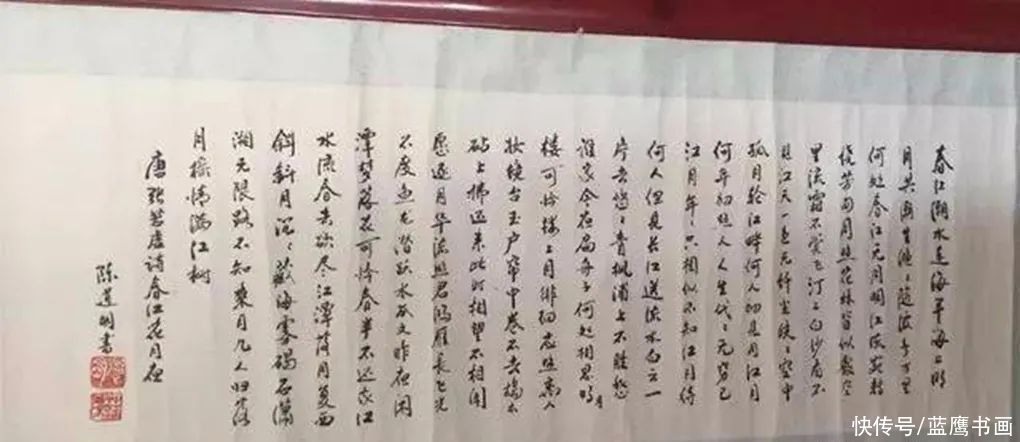 春江潮水连海平海上明
月共潮生滟々随波千万里
何处春江无月明江流宛转
绕芳甸月照花林皆似霰空
里流霜不觉飞汀上白沙看不
见江天一色无纤尘皎々空中
孤月轮江畔何人初见月江月
何年初照人人生代々无穷已
江月年々只相似不知江月待
何人但见长江送流水白云一
片去悠々青枫浦上不胜愁
谁家今夜扁舟子何处相思明月
楼可怜楼上月徘徊应照离人
妆镜台玉户帘中卷不去捣衣
砧上拂还来此时相望不相闻
愿逐月华流照君鸿雁长飞光
不度鱼龙潜跃水成文昨夜闲
潭梦落花可怜春半不还家江
水流春去欲尽江潭落月复西
斜斜月沉々藏海雾碣石潇
湘无限路不知乘月几人归落
月摇情满江树
唐张若虚诗春江花月夜
陈道明书
快传号/蓝鹰书画